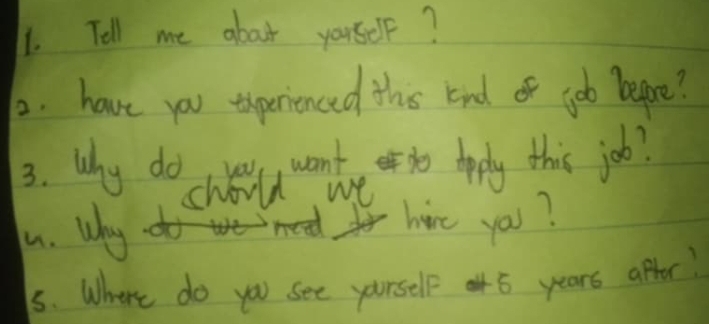 1. Tell me about yourself ?
2. have you experienced this kind of job before?
3. Why do you want to Apply this job?
4. Why should we hire you ?
5. Where do you see yourself 5 years after?